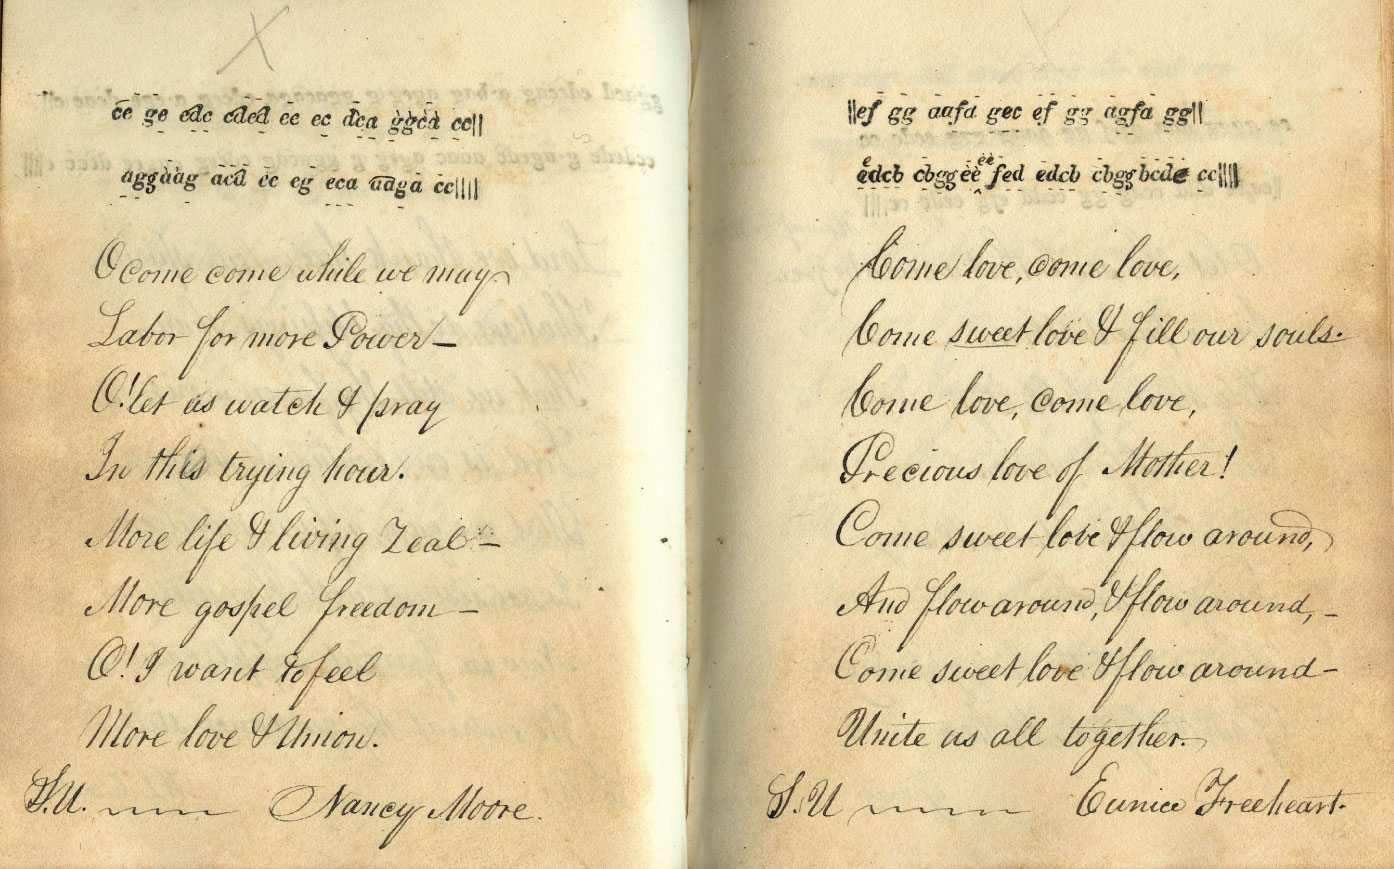 ce ge edc cded ec ec dca ggcd cc||
aggaag acd ec eg eca aaga cc||||
O come come while we may
Labor for more Power —
O! let us watch & pray
In this trying hour.
More life & living Zeal —
More gospel freedom —
O! I want to feel
More love & Union.
S.U. Nancy Moore.
||ef gg aafd gec ef gg agfa gg||
edcb cbggee fed edcb cbggbcde cc||||
Come love, come love,
Come sweet love & fill our souls.
Come love, come love,
Precious love of Mother!
Come sweet love & flow around,
And flow around, & flow around, –
Come sweet love & flow around –
Unite us all together.
S.U Eunice Freeheart.